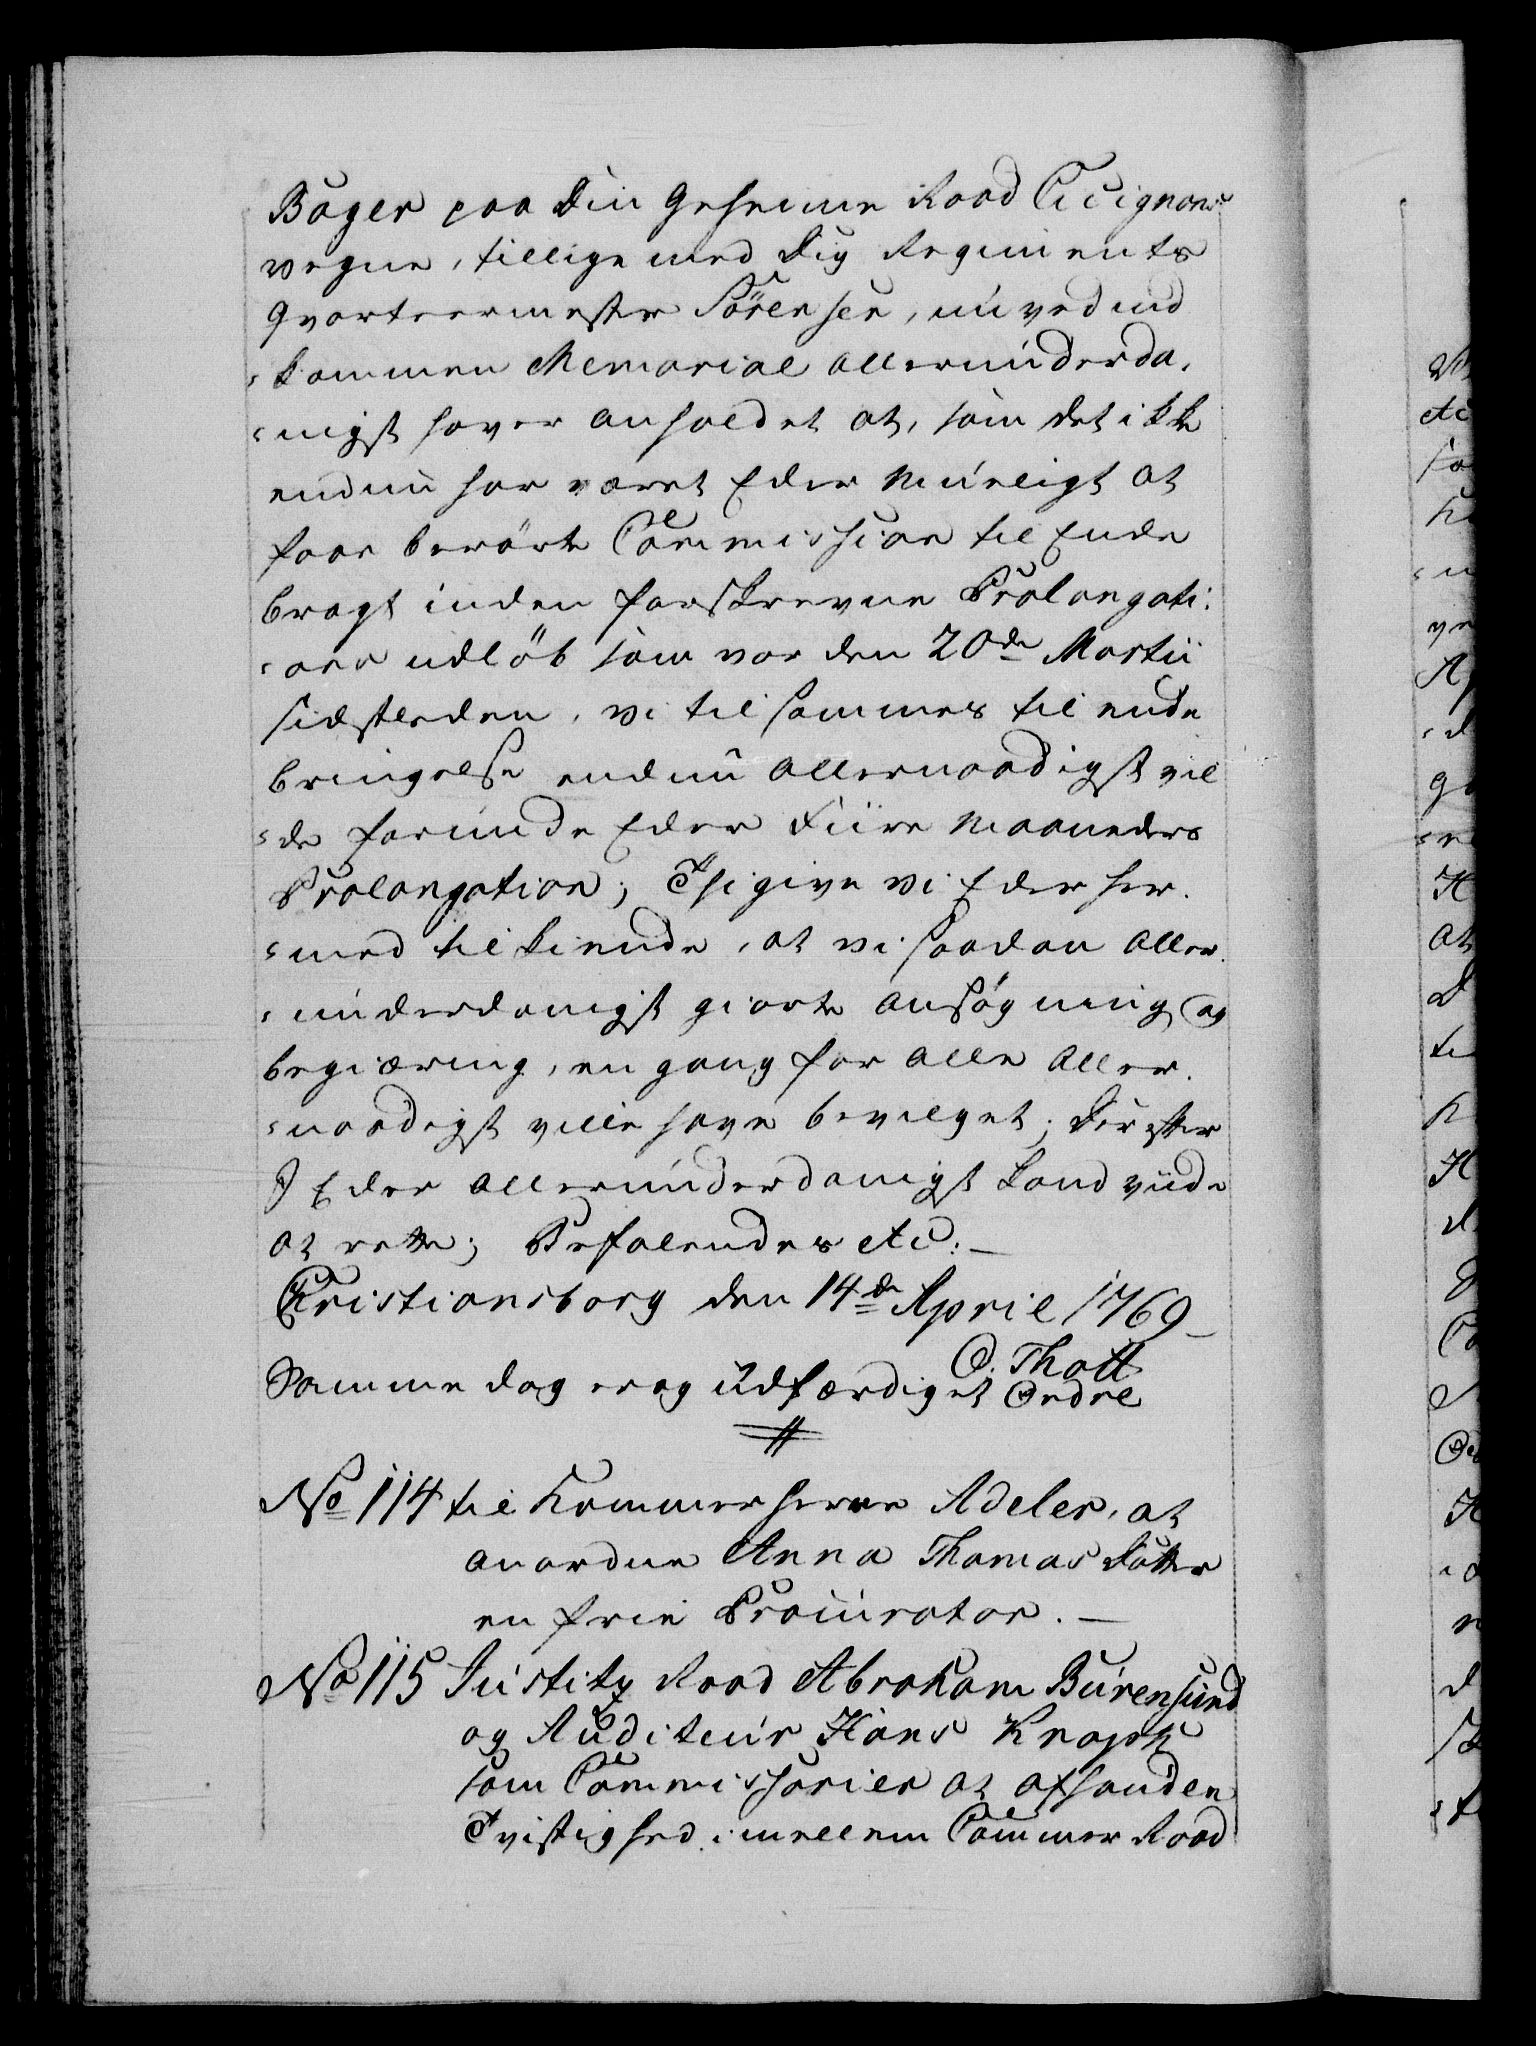 Bager paa din Geheime Raad Cicignons
vegne, tillige med dig Regiments
Qvarteermester Sörensen, nu ved ind
-kommen Memorial allerunderda-
-nigst haver anholdet at, som det ikke
endnu har været Eder mueligt at
faae berörte Commission til Ende
bragt inden forskrevne Prolongati-
-ons udlöb som var den 20de Martii
sidstleden, vi til sammes til ende
bringelse endnu allernaadigst vil
-de forunde Eder Fiire Maaneders
Prolongation; Thi give vi Eder her-
-med tilkiende, at vi saadan aller-
-underdanigst giorte ansögning og
begiæring, en gang for alle aller-
-naadigst ville have bevilget; Derefter
I Eder allerunderdanigst kand viide
at rette; Befalendes etc:
Christiansborg den 14de April 1769
O. Thott
Samme dag er og udfærdiget Ordre
No 114 til Kammerherre Adeler, at
anordne Anna Thomas Datter
en frie Procurator.
No 115 Justitz Raad Abraham Bürensund
og Auditeur Hans Knoph
som Commissarier at afhandle
Tvistighed imellem Cammer Raad